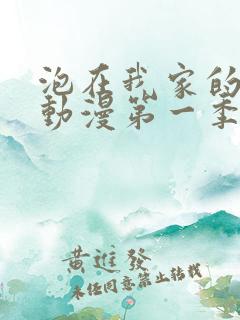 泡在我家的
動漫第一季
黄進發
未经同意禁止转载